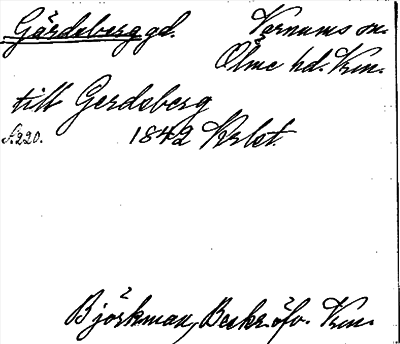 Gärdsberg gd. Varnums sn.
Ölme hd. Vrm.
till Gerdsberg
s. 220. 1842 Krbet.
Björkman, Beskr. öfv. Vrm.